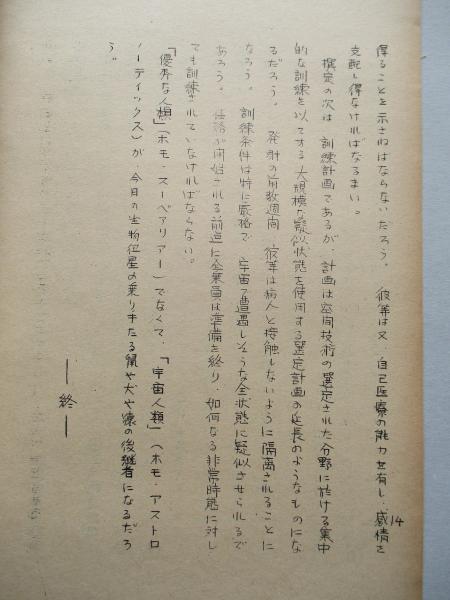 14
得ることを示さねばならないだろう。 彼等は又、自己医療の能力を有し、感情を
支配し得なければなるまい。
検定の次は 訓練計画であるが、計画は空間技術の選定された分野に於ける集中
的な訓練を以てする大規模な疑似状態を使用する選定計画の延長のようなものにな
るだろう。 発射の前数週間 彼等は病人と接触しないように隔離されることに
なろう。 訓練条件は特に厳格で 宇宙で遭遇しそうな全状態に疑似させられるで
あろう。 任務が開始される前迄に全乗員は準備を終り、如何なる非常時態に対し
ても訓練されていなければならない。
「優秀な人類」(ホモ・スーペアリアー)でなくて、「宇宙人類」(ホモ・アストロ
ノーティックス)が、今日の生物衛星の乗り手たる鼠や犬や猿の後継者になるだろ
う。
―終―